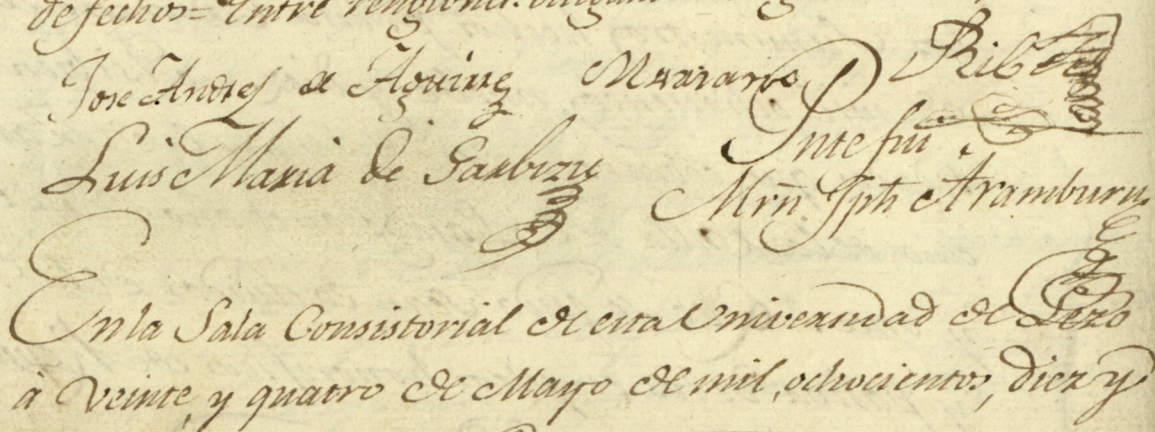 de fechos = Entre renglones:
Jose Andres de Aguirre Mariano Ribera
Luis Maria de Garbizu Ante fui
Mrñ Jph Aramburu
En la Sala Consistorial de esta Universidad de Lezo
á Veinte, y quatro de Mayo de mil, ochocientos, diez y